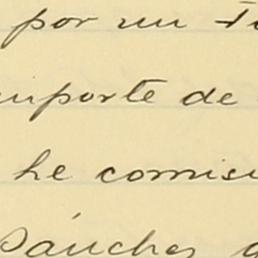 por un
importe de
he comisi
Sánchez